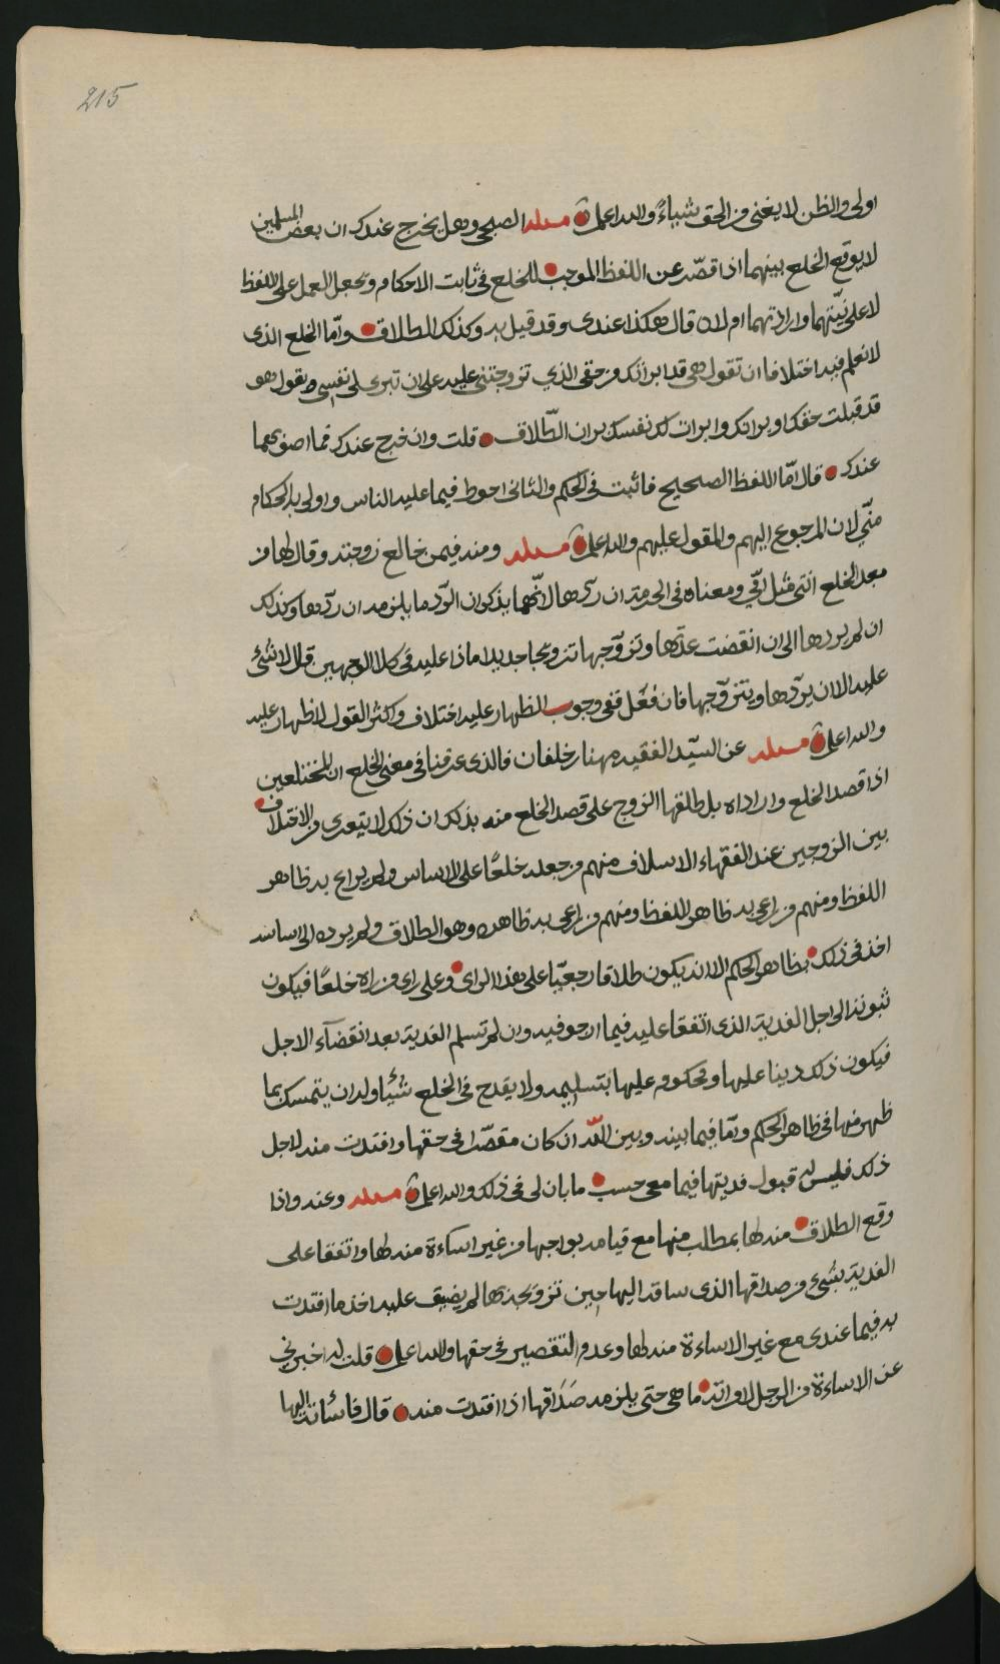 215
اولى والظن لا يغنى من الحق شياءً والله اعلم مسئلة الصبحى وهل يخرج عندك ان بعض المسلمين
لا يوقع الخلع بينهما اذا قصّر عن اللفظ الموجب للخلع فى ثابت الاحكام ويجعل العمل على اللفظ
لا على نيّتهما وارادتهما ام لا قال هكذا عندى وقد قيل به وكذلك الطلاق وامّا الخلع الذى
لا نعلم فيه اختلافا ان تقول هى قد ابراتك من حقى الذي تزوجتنى عليه على ان تبرى لى نفسى ويقول هو
قد قبلت حقك او براتك وابرات لك نفسك بران الطّلاق قلت وان خرج عندك فما اصوبهما
عندك قال امّا اللفظ الصحيح فاثبت فى الحكم والثانى احوط فيما عليه الناس واولى به الحكام
منّي لان المرجوع اليهم والمقول عليهم والله اعلم مسئلة ومنه فيمن خالع زوجته وقال لها من
بعد الخلع انتى مثل امّي ومعناه فى الحرمة ان ردّها لانّهما يذكران الردّ ما يلزمه ان ردّها وكذلك
ان لم يردها الى ان انقضت عدّتها وتزوّجها تزويجا جديدا ماذا عليه فى كلا الوجهين قال لا شئ
عليه الا ان يردّها ويتزوّجها فان فعَل ففى وجوب الظهار عليه اختلاف واكثر القول لا ظهار عليه
والله اعلم مسئلة عن السيّد الفقيه مهنا بن خلفان فالذى عرفنا فى معنى الخلع ان المختلعين
اذا قصدا الخلع واراداه بل طلقها الزوج على قصد الخلع منه بذلك ان ذلك لا يتعدى من الاختلاف
بين الزوجين عند الفقهاء الاسلاف منهم من جعله خلعًا على الاساس ولم يراع به ظاهر
اللفظ ومنهم من راعى به ظاهر اللفظ ومنهم من راعى به ظاهره وهو الطلاق ولم يرده الى اساسه
اخذ فى ذلك بظاهر الحكم الا انه يكون طلاقا رجعيّا على هذا الراى وعلى راى من راه خلعًا فيكون
ثبوته الى اجل الفدية الذى اتفقا عليه فيما ارجو فيه وان لم تسلم الفدية بعد انقضآء الاجل
فيكون ذلك دينا عليها ومحكوم عليها بتسليمه ولا يقدح فى الخلع شيًا وله ان يتمسك بما
ظهر منها فى ظاهر الحكم وامّا فيما بينه وبين الله ان كان مقصّرا فى حقها وافتدت منه لاجل
ذلك فليس له قبول فديتها فيما معى حسب ما بان لى فى ذلك والله اعلم مسئلة وعنه واذا
وقع الطلاق منه لها بمطلب منها مع قيامه بواجبها من غير اساءة منه لها واتفقا على
الفدية بشئ من صداقها الذى ساقه اليها حين تزويجه بها لم يضيق عليه اخذ ما افتدت
به فيما عندى مع غير الاساءة منه لها وعدم التقصير فى حقها والله اعلم قلت له اخبرنى
عن الاساءة من الرجل لامراته ما هى حتى يلزمه صَدَاقها اذا افتدت منه قال فاساته اليها